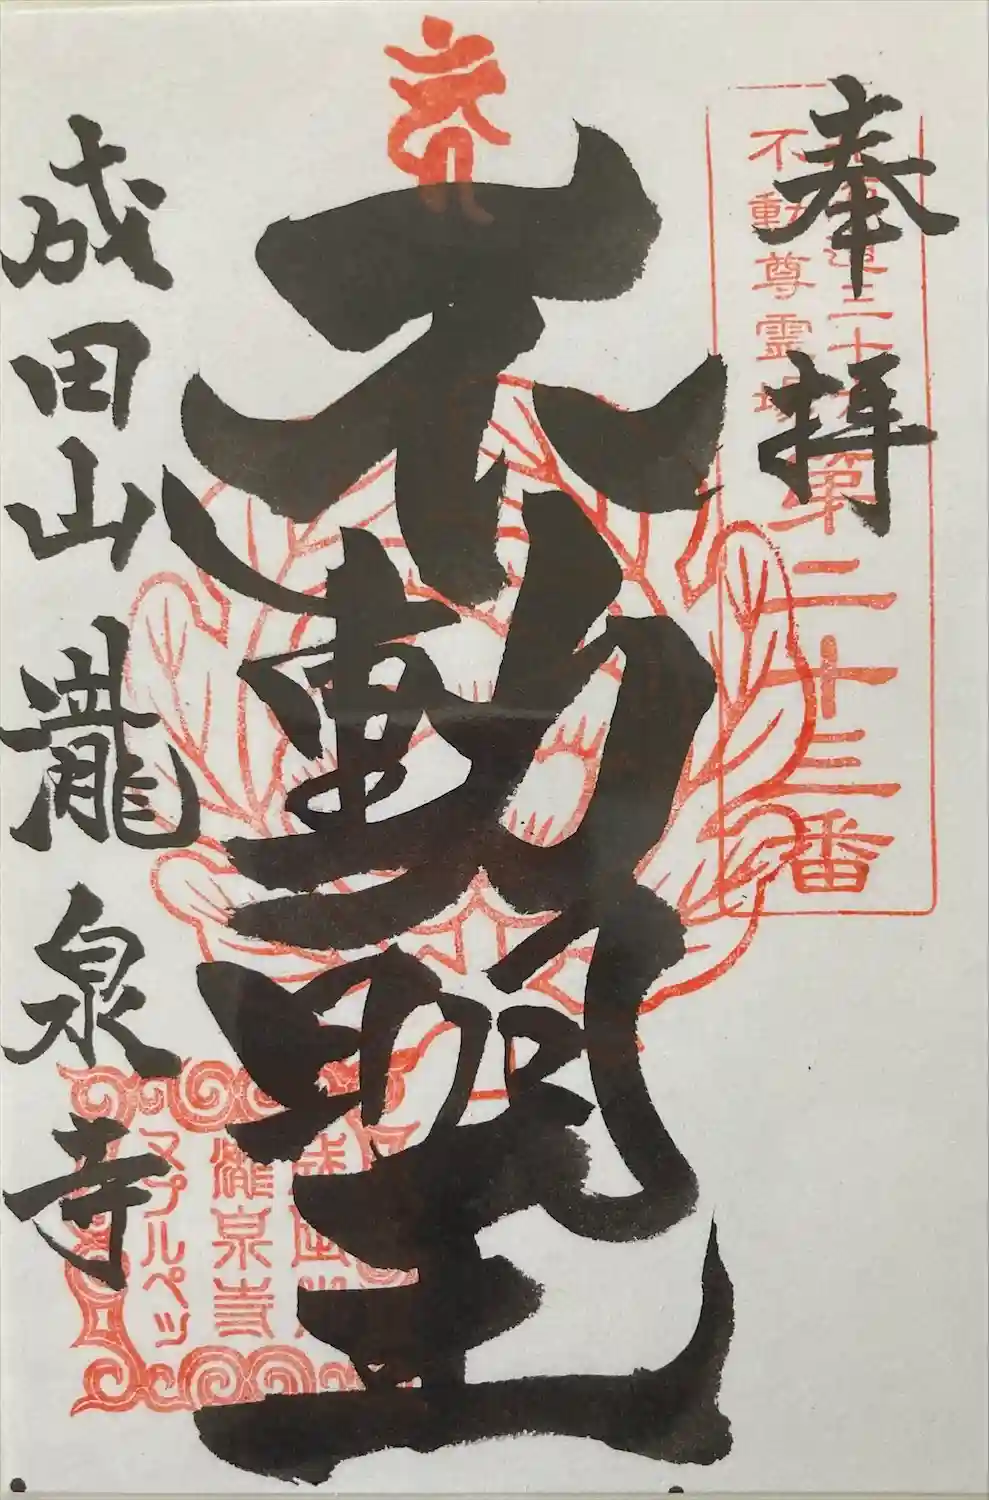 奉拝
三十六 第二十三番
不動尊霊場
不動明王
成田山瀧泉寺
成田山
瀧泉寺
ヌプルペッ